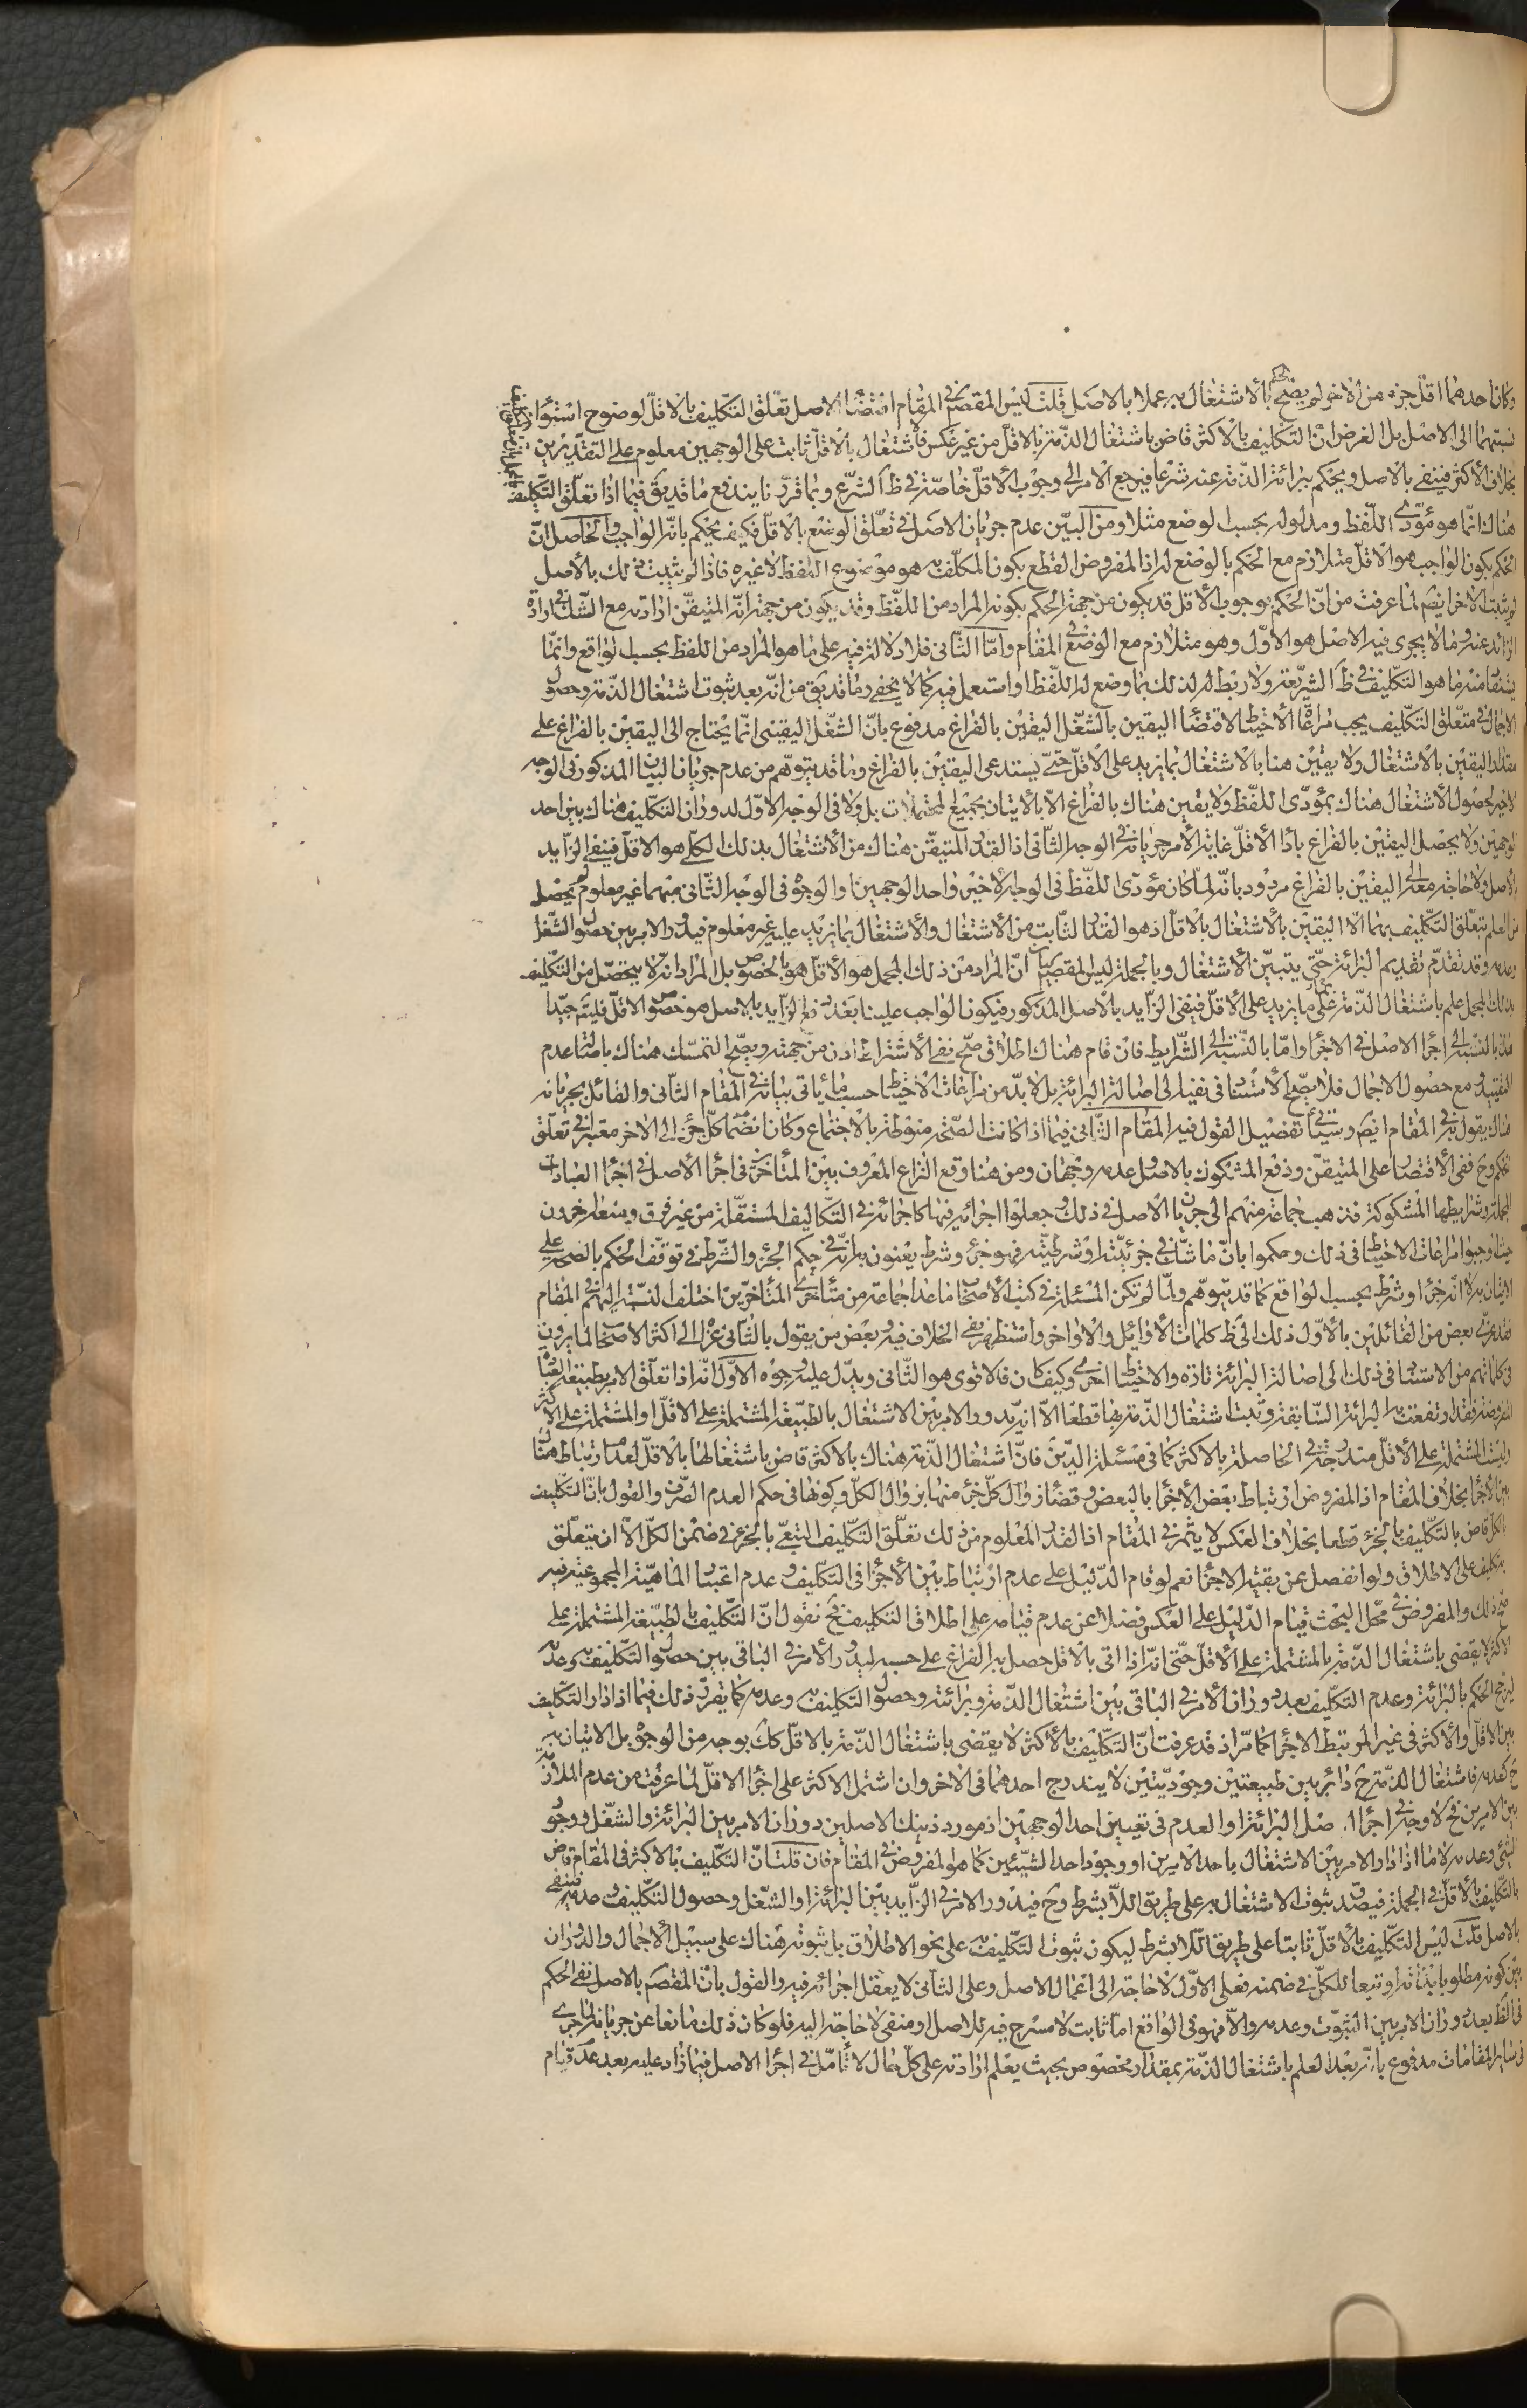 وكان احدهما اقلّ جزء من الاخر لم يصحّ الحكم بالاشتغال به عملا بالاصل قلت ليس المقصم في المقام اقتضاء الاصل تعلّق التكليف بالاقلّ لوضوح استواء
نسبتهما الى الاصل بل الغرض انّ التكليف بالاكثر قاض باشتغال الذمّة بالاقلّ من غير عكس فاشتغال بالاقلّ ثابت على الوجهين معلوم على التقديرين
بخلاف الاكثر فينفى بالاصل ويحكم ببرائة الذمّة عنه شرعا فيرجع الامر الى وجوب الاقلّ خاصّة في ظ الشرع وبما قرّرنا يندفع ما قد يق فيما اذا تعلّق التكليف
هناك انّما هو مؤدّى اللّفظ ومدلوله بحسب الوضع مثلا ومن البيّن عدم جريان الاصل في تعلّق الوضع بالاقلّ فكيف يحكم بانّه الواجب والحاصل انّ
الحكم بكون الواجب هو الاقلّ متلازم مع الحكم بالوضع له اذ المفروض القطع بكون المكلّف به هو موضوع اللفظ لا غيره فاذا لم يثبت ذلك بالاصل
لم يثبت الاخر ايضم لما عرفت من انّ الحكم بوجوب الاقل قد يكون من جهة الحكم بكونه المراد من اللفظ وقد يكون من جهة انّه المتيقّن ارادته مع الشك في ارادة
الزائد عنه وما لا يجرى فيه الاصل هو الاوّل وهو متلازم مع الوضع في المقام وامّا الثّانى فلا دلالة فيه على ما هو المراد من اللفظ بحسب الواقع وانّما
يستفاد منه ما هو التكليف في ظ الشريعة ولا ربط له لذلك بما وضع له اللّفظ او استعمل فيه كما لا يخفى وما قد يق من انّه بعد ثبوت اشتغال الذمّة وحصول
الاجمال في متعلّق التكليف يجب مراعاة الاحتياط لاقتضاء اليقين بالشّغل اليقين بالفراغ مدفوع بانّ الشغل اليقينى انّما يحتاج الى اليقين بالفراغ على
مقدار اليقين بالاشتغال ولا يقين هنا بالاشتغال بما يزيد على الاقلّ حتّى يستدعى اليقين بالفراغ وما قد يتوهّم من عدم جريان البيان المذكور في الوجه
الاخير لحصول الاشتغال هناك بمؤدّى اللّفظ ولا يقين هناك بالفراغ الّا بالاتيان بجميع المحتملات بل ولا في الوجه الاوّل لدوران التكليف هناك بين احد
الوجهين ولا يحصل اليقين بالفراغ باداء الاقلّ غاية الامر جريانه في الوجه الثّانى اذ القدر المتيقّن هناك من الاشتغال بذلك الكلّى هو الاقلّ فينفى الزّايد
بالاصل ولا حاجة معه الى اليقين بالفراغ مردود بانّه لمّا كان مؤدّى اللّفظ في الوجه الاخير واحد الوجهين او الوجوه في الوجه الثّانى منهما غير معلوم لم يحصل
من العلم بتعلّق التكليف بهما الّا اليقين بالاشتغال بالاقلّ اذ هو القدر الثّابت من الاشتغال والاشتغال بما يزيد عليه غير معلوم فيدور الامر بين حصول الشّغل
وعدمه وقد تقدّم تقديم البرائة حتّى يتبيّن الاشتغال وبالجملة ليس المقصم بيان انّ المراد من ذلك المجمل هو الاقلّ هو بالخصوص بل المراد انه لا يتحصّل من التكليف
بذلك المجمل علم باشتغال الذمّة بما يزيد على الاقلّ فينفى الزّايد بالاصل المذكور فيكون الواجب علينا بعد رفع الزّايد بالاصل هو خصوص الاقلّ فليتم جيّدا
هذا بالنّسبة الى اجراء الاصل في الاجزاء وامّا بالنّسبة الى الشّرايط فان قام هناك اطلاق صحّ نفى الاشتراط اذن من جهته ويصحّ التمسّك هناك باصالة عدم
التقييد ومع حصول الاجمال فلا يصحّ الاستناد في نفيه الى اصالة البرائة بل لا بدّ من مراعات الاحتياط حسب ما يأتى بيانه في المقام الثّانى والقائل بجريانه
هناك يقول به في المقام ايضم وسيأتى تفصيل القول فيه المقام الثّانى فيما اذا كانت الصّحّة منوطة بالاجتماع وكان انضمام كلّ جزء الى الاخر معتبرا في تعلّق
الحكم وح ففى الاقتصار على المتيقّن ودفع المشكوك بالاصل وعدمه وجهان ومن هنا وقع النزاع المعروف بين المتأخّرين في اجراء الاصل في اجزاء العبادات
المجملة وشرايطها المشكوكة فذهب جماعة منهم الى جريان الاصل في ذلك وجعلوا اجرائه فيها كاجرائه في التّكاليف المستقلّة من غير فرق ومنعه اخرون
حيث اوجبوا مراعات الاحتياط في ذلك وحكموا بانّ ما شكّ في جزئيّته او شرطيّته فهو جزء وشرط يعنون به انّه في حكم الجزء والشّرط في توقّف الحكم بالصحّة على
الاتيان به لا انّه جزء او شرط بحسب الواقع كما قد يتوهّم ولمّا لم تكن المسئلة في كتب الاصحاب ما عدا جماعة من متأخّرى المتأخّرين اختلف النّسبة اليهم في المقام
فقد عزى بعض من القائلين بالاوّل ذلك الى ظ كلمات الاوايل والاواخر واستظهر نفى الخلاف فيه وبعض من يقول بالثّانى عزاه الى اكثر الاصحاب لما يرون
في كلماتهم من الاستناد في ذلك الى اصالة البرائة تارة والاحتياط اخرى وكيف كان فالاقوى هو الثّانى ويدلّ عليه وجوه الاوّل انّه اذا تعلّق الامر بطبيعة العبادة
المفروضة فقد ارتفعت به البرائة السّابقة وثبت اشتغال الذمّة بها قطعا الّا انّه يدور الامر بين الاشتغال بالطّبيعة المشتملة على الاقلّ او المشتملة على الاكثر
وليست المشتملة على الاقلّ مندرجة في الحاصلة بالاكثر كما في مسئلة الدّين فانّ اشتغال الذّمّة هناك بالاكثر قاض باشتغالها بالاقلّ لعدم ارتباط هناك
بين الاجزاء بخلاف المقام اذ المفروض ارتباط بعض الاجزاء بالبعض وقضاء زوال كلّ جزء منها بزوال الكلّ وكونها في حكم العدم الصّرف والقول بانّ التّكليف
بالكلّ قاض بالتّكليف بالجزء قطعا بخلاف العكس لا يثمر في المقام اذ القدر المعلوم من ذلك تعلّق التّكليف التبعى بالجزء في ضمن الكلّ الّا ان يتعلّق
به تكليف على الاطلاق ولو انفصل عن بقيّة الاجزاء نعم لو قام الدّليل على عدم ارتباط بين الاجزاء في التّكليف وعدم اعتبار الماهيّة المجموعيّة فيه
صحّ ذلك والمفروض في محل البحث قيام الدّليل على العكس فضلا عن عدم قيامه على اطلاق التّكليف فح نقول انّ التّكليف بالطبيعة المشتملة على
الاكثر لا يقضى باشتغال الذمّة بالمشتملة على الاقلّ حتّى انّه اذا اتى بالاقل حصل به الفراغ على حسبه ليدور الامر في الباقى بين حصول التّكليف به وعدمه
ليرجّح الحكم بالبرائة وعدم التّكليف بعد دوران الامر في الباقى بين اشتغال الذمّة وبرائته وحصول التكليف به وعدمه كما يقرّر ذلك فيما اذا دار التّكليف
بين الاقلّ والاكثر في غير المرتبط الاجزاء كما مرّ اذ قد عرفت انّ التّكليف بالاكثر لا يقضى باشتغال الذمّة بالاقلّ كك بوجه من الوجوه بل الاتيان به
ح كعدمه فاشتغال الذمّة ح دائر بين طبيعتين وجوديّتين لا يندرج احدهما في الاخر وان اشتمل الاكثر على اجزاء الاقلّ لما عرفت من عدم الملازمة
بين الامرين فح لا وجه في اجراء اصل البرائة او العدم في تعيين احد الوجهين اذ مورد ذينك الاصلين دوران الامر بين البرائة والشّغل ووجود
الشّئ وعدمه لا ما اذا دار الامر بين الاشتغال باحد الامرين او وجود احد الشّيئين كما هو المفروض في المقام فان قلت انّ التّكليف بالاكثر في المقام قاض
بالتّكليف بالاقلّ في الجملة فيصدق ثبوت الاشتغال به على طريق اللّا بشرط وح فيدور الامر في الزّايد بين البرائة او الشّغل وحصول التّكليف وعدمه فينفى
بالاصل قلت ليس التّكليف بالاقلّ ثابتا على طريق اللّا بشرط ليكون ثبوت التّكليف به على نحو الاطلاق بل ثبوته هناك على سبيل الاجمال والدّوران
بين كونه مطلوبا بذاته او تبعا للكلّ في ضمنه فعلى الاوّل لا حاجة الى اعمال الاصل وعلى الثّانى لا يعقل اجرائه فيه والقول بانّ المقصم بالاصل نفى الحكم
في الظ بعد دوران الامر بين الثّبوت وعدمه والّا فهو في الواقع امّا ثابت لا مسرح فيه للاصل او منفى لا حاجة اليه فلو كان ذلك مانعا عن جريانه لجرى
في ساير المقامات مدفوع بانّه بعد العلم باشتغال الذمّة بمقدار مخصوص بحيث يعلم ارادته على كلّ حال لا تأمّل في اجراء الاصل فيما زاد عليه بعد عدم قيام